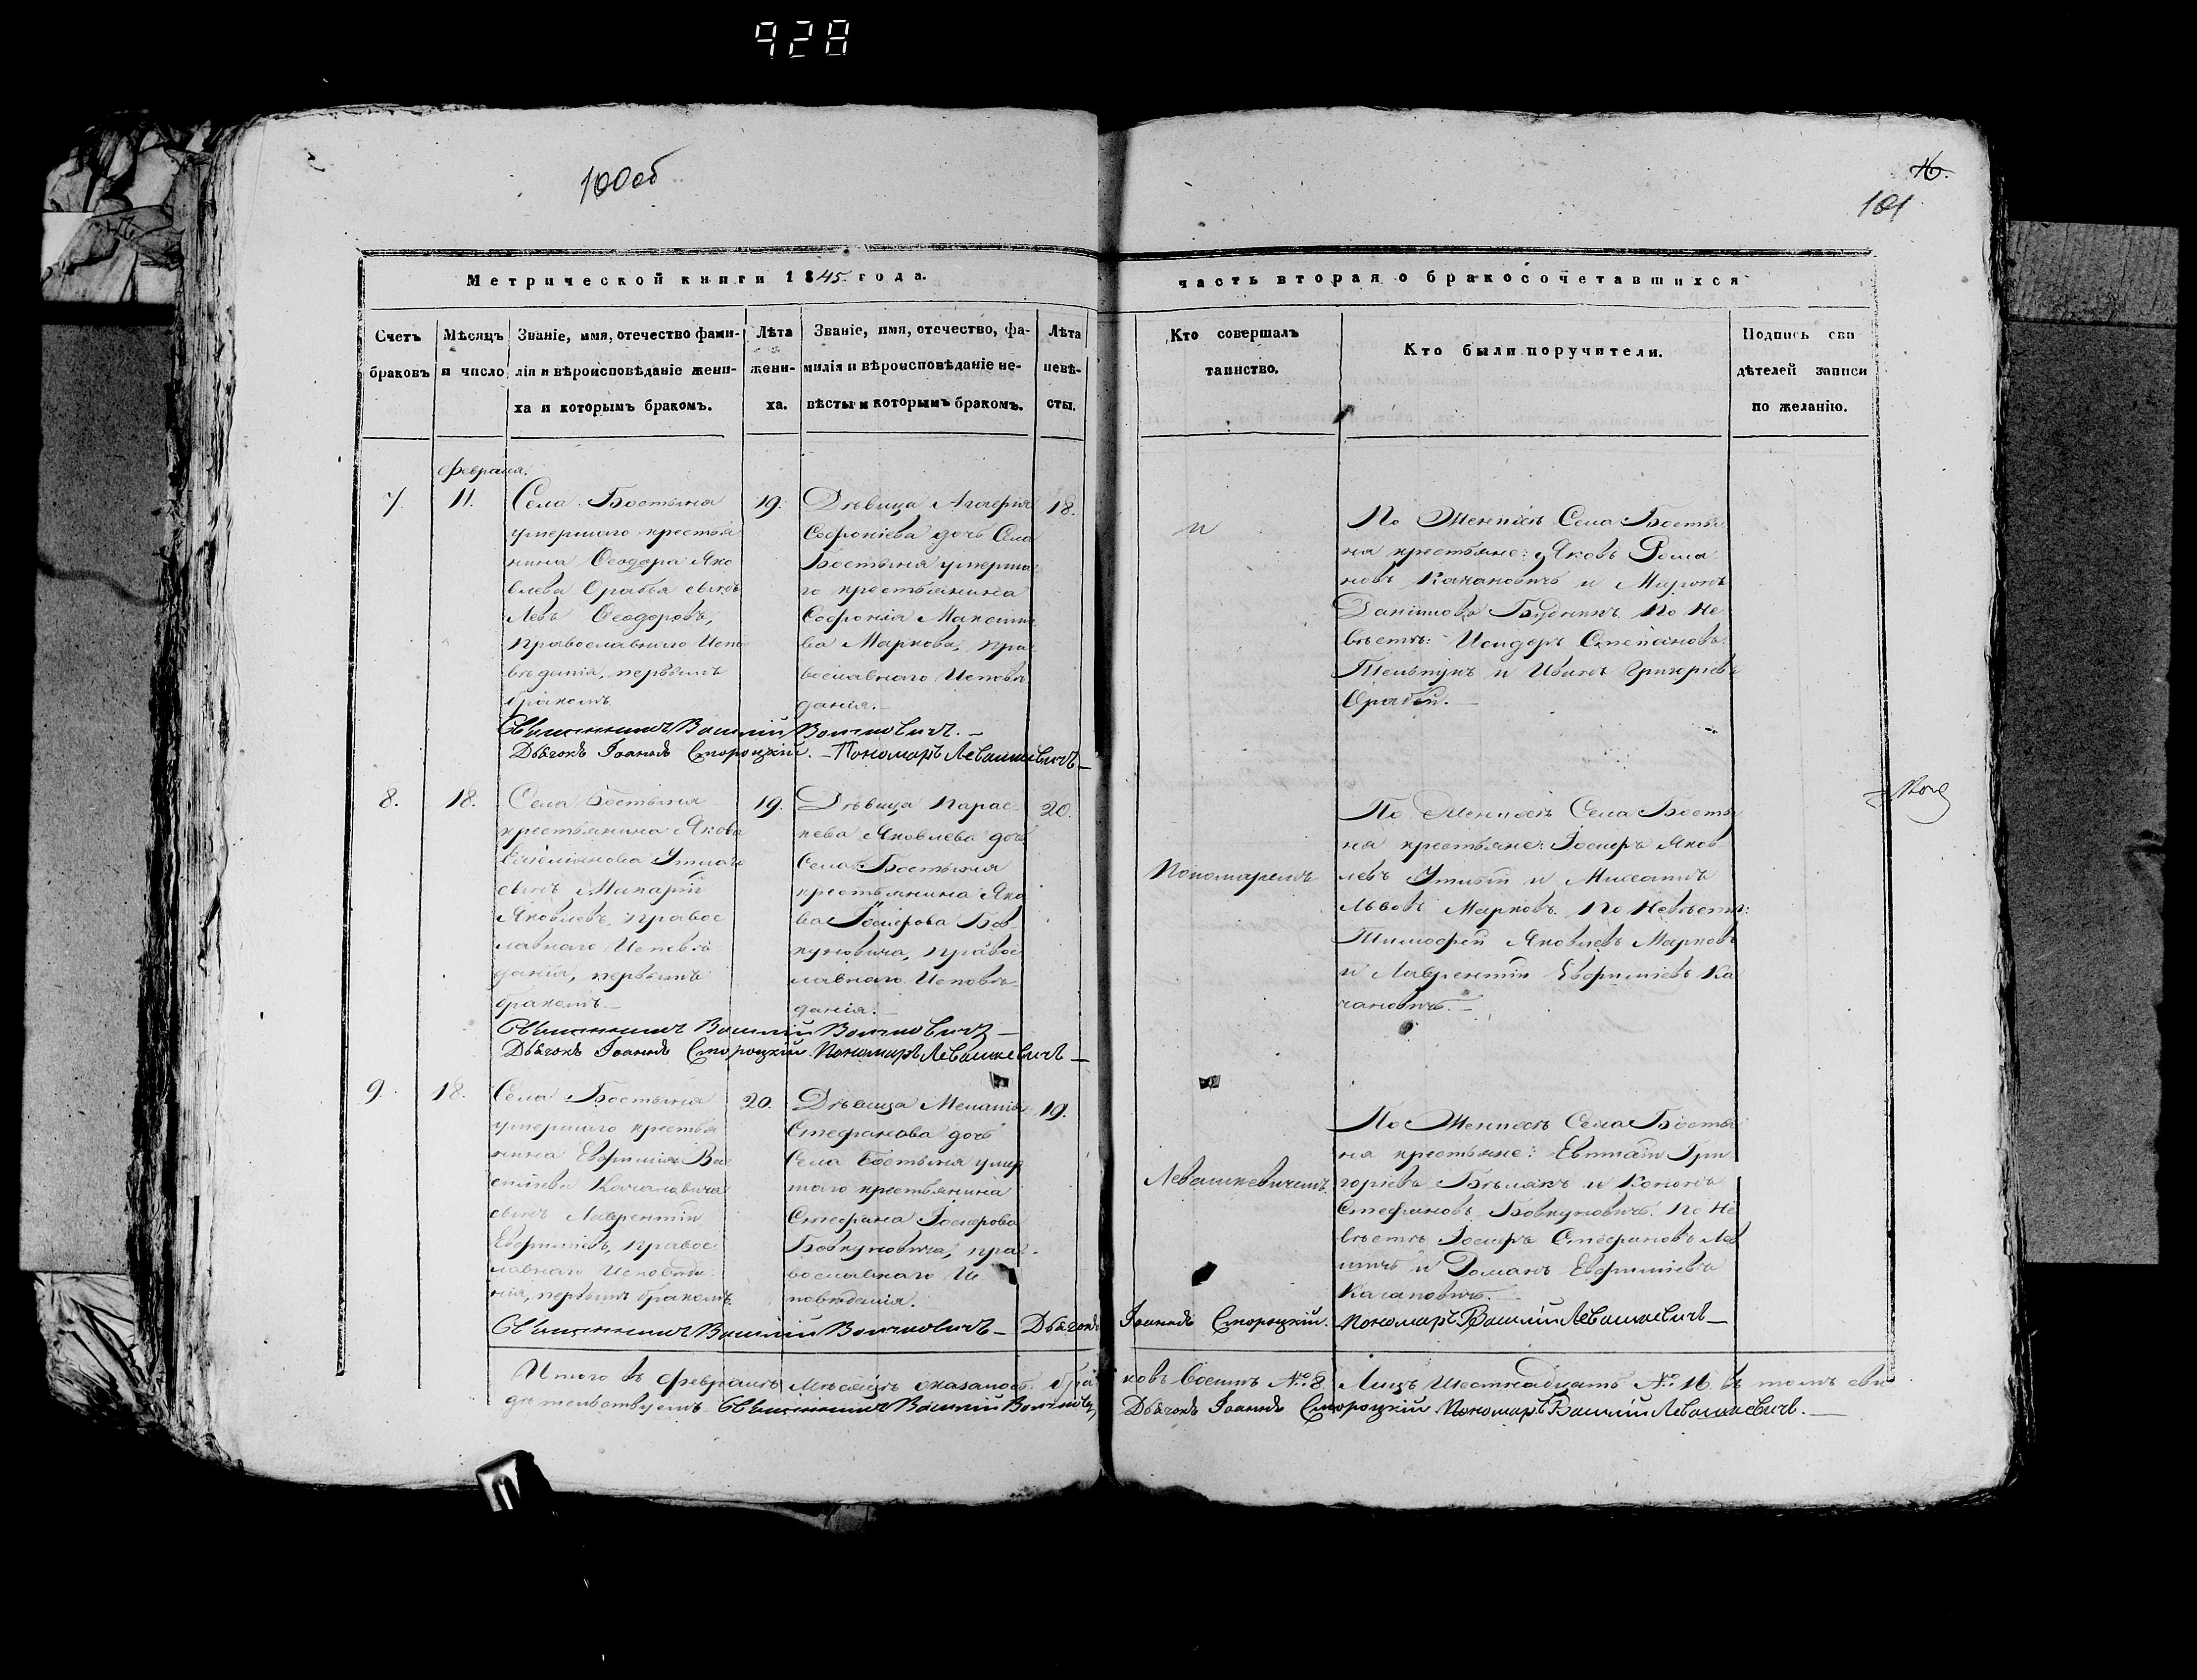 928
100об
16.
101
Метрической книги 1845 года.
часть вторая о бракосочетавшихся
Счетъ браковъ
Мѣсяцъ и число
Званіе, имя, отечество фами-
лія и вѣроисповѣданіе жени-
ха и которымъ бракомъ.
Лѣта
жени-
ха.
Званіе, имя, отечество, фа-
милія и вѣроисповѣданіе не-
вѣсты и которымъ бракомъ.
Лѣта
невѣ-
сты.
Кто совершалъ
таинство.
Кто были поручители.
Подпись сви
дѣтелей записи
по желанію.
Февраля.
7.
11.
Села Бостыня
умершаго крестья
нина Ѳеодора Яко
влева Орабья сынъ
Левъ Ѳеодоровъ,
православнаго Испо
вѣданія, первымъ
бракомъ
19.
Дѣвица Агаѳія
Софроніева дочь Села
Бостыня умерша
го крестьянина
Софронія Максимо
ва Маркова, пра
вославнаго Исповѣ
данія.
18.
и
По Женихѣ Села Босты
ня крестьяне: Яковъ Рома
новъ Качановичъ и Миронъ
Даніиловъ Будникъ. По Не
вѣстѣ: Исидоръ Степановъ
и Иванъ Григорьевъ
Орабей.
Священникъ Василій Волчковичъ.
Дьячокъ Іоаннъ Сторожкій. Пономарь Левашкевичъ
8.
18.
Села Бостыня
крестьянина Якова
Емеліянова Утлаго
сынъ Макарій
Яковлевъ, правос
лавнаго Исповѣ
данія, первымъ
бракомъ.
19.
Дѣвица Парас
кева Яковлева дочь
Села Бостыня
крестьянина Яко
ва Іосифова Бов
куновича, правос
лавнаго Исповѣ
данія.
20.
Пономаремъ
По Женихѣ Села Босты
ня крестьяне: Іосифъ Яков
левъ Утлый и Михаилъ
Львовъ Марковъ. По Невѣстѣ:
Тимофей Яковлевъ Марковъ
и Лаврентій Евфиміевъ Ка
чановичъ.
Священникъ Василій Волчковичъ
Дьячокъ Іоаннъ Сторожкій. Пономарь Левашкевичъ
9.
18.
Села Бостыня
умершаго крестья
нина Евфимія Ва
силіева Качановича
сынъ Лаврентій
Евфиміевъ, правос
лавнаго Исповѣда
нія, первымъ бракомъ.
20.
Дѣвица Меланія
Стефанова дочь
Села Бостыня умер
шаго крестьянина
Стефана Іосифова
Бовкуновича, пра
вославнаго Ис
повѣданія.
19.
Левашкевичемъ.
По Женихѣ Села Босты
ня крестьяне: Гри
горіевъ Бѣлякъ и Кононъ
Стефановъ Бовкуновичъ. По Не
вѣстѣ Іосифъ Стефановъ
и Романъ Евфиміевъ
Качановичъ.
Священникъ Василій Волчковичъ Дьячокъ Іоаннъ Сторожкій. Пономарь Василій Левашкевичъ
Итого въ Февралѣ Мѣсяцѣ оказалось браковъ восемь №. 8 Лицъ Шестнадцать №. 16 въ томъ сви
дѣтельствуемъ Священникъ Василій Волчковичъ Дьячокъ Іоаннъ Сторожкій. Пономарь Василій Левашкевичъ.